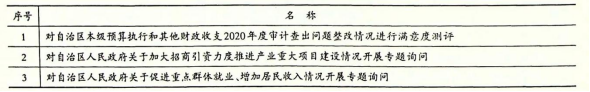 序号 名称
1 对自治区本级预算执行和其他财政收支2020年度审计查出问题整改情况进行满意度测评
2 对自治区人民政府关于加大招商引资力度推进产业重大项目建设情况开展专题询问
3 对自治区人民政府关于促进重点群体就业、增加居民收入情况开展专题询问